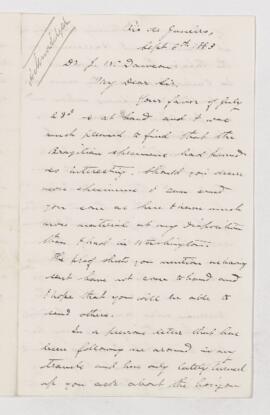 Rio de Janeiro,
Sept 6th 1883
Dr. J. W. Dawson
My Dear Sir.
Your favor of July
23d is at hand and I was
much pleased to find that the
Brazilian specimens had proved
so interesting. Should you desire
more specimens I can send
you some as here I have much
more material at my disposition
than I had in Washington.
The proof sheets you mention having
sent have not come to hand and
I hope that you will be able to
send others.
In a previous letter that has
been following me around in my
travels and has only lately turned
up you ask about the horizon